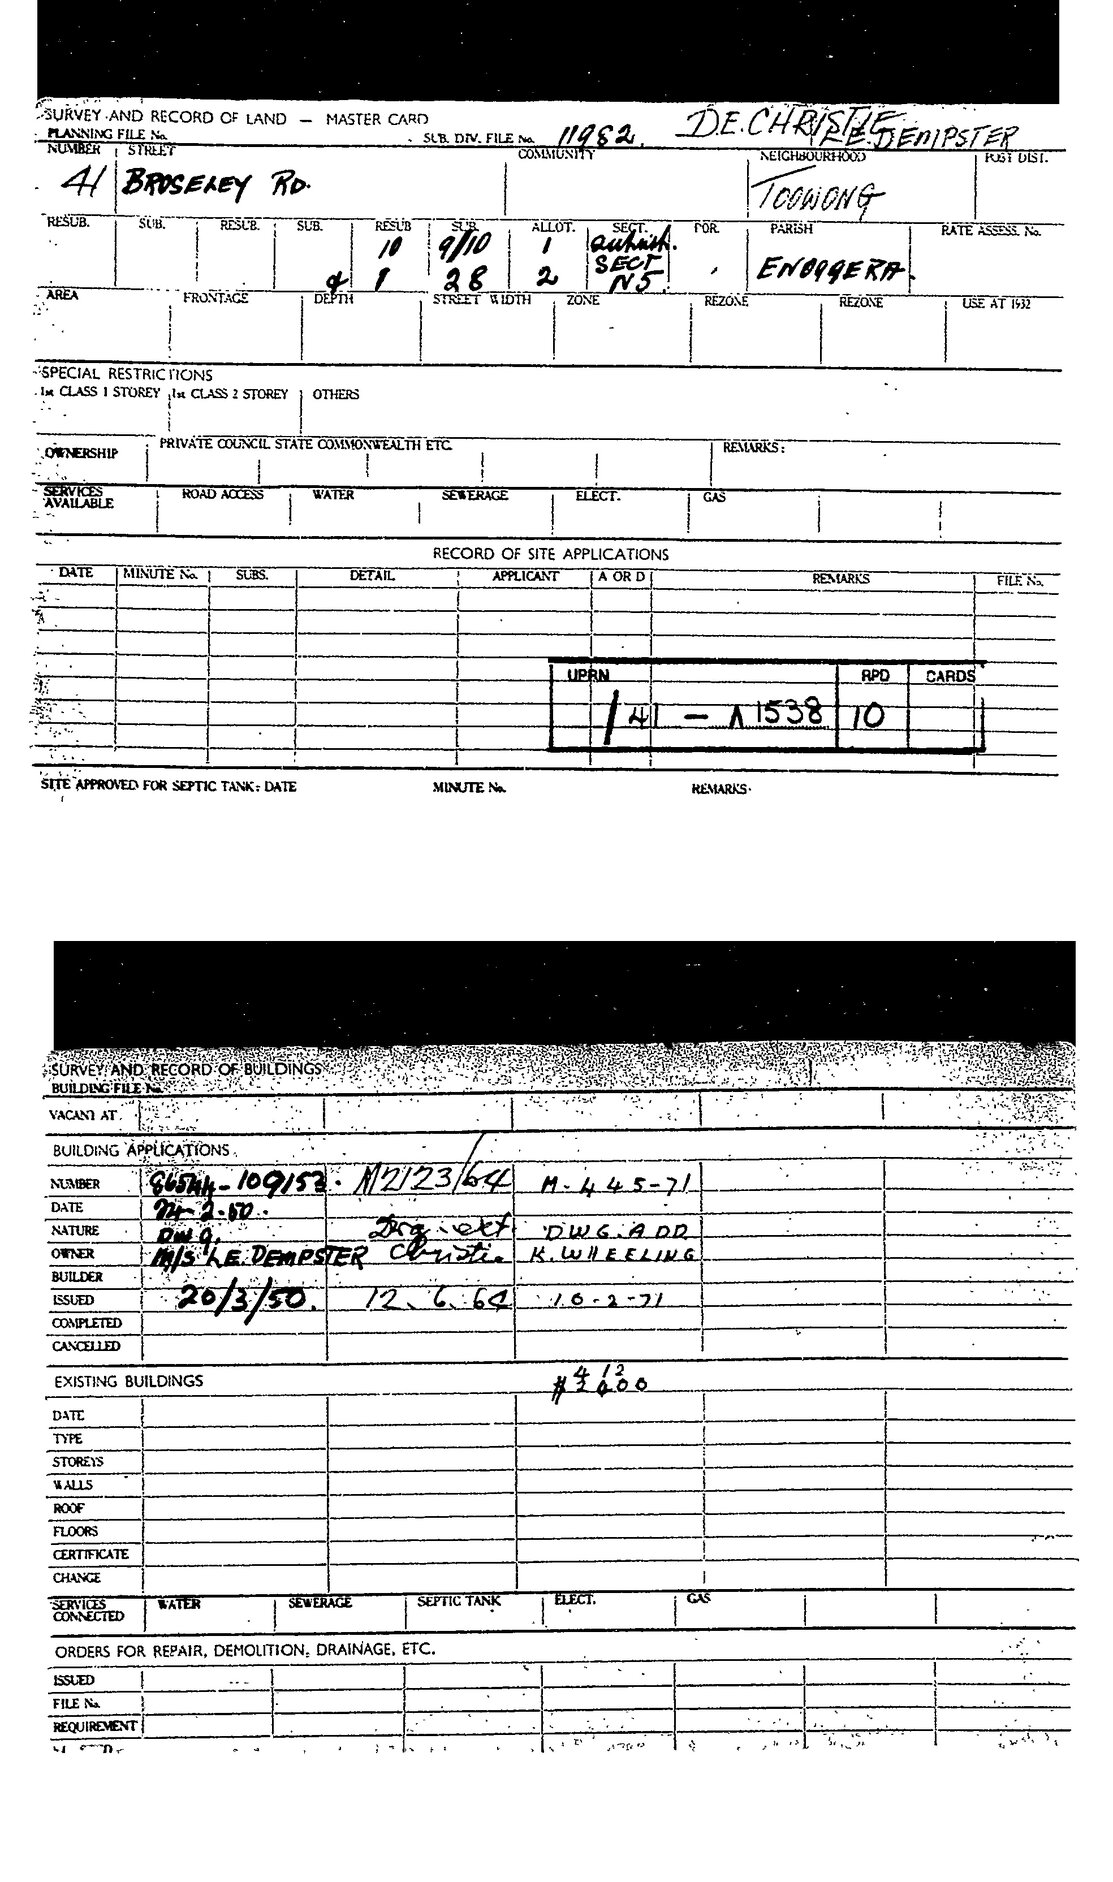 SURVEY AND RECORD OF LAND — MASTER CARD
PLANNING FILE No. SUB. DIV. FILE No. 11982 D.E. CHRISTIE L.E. DEMPSTER
NUMBER STREET COMMUNITY NEIGHBOURHOOD POST DIST.
41 BROSELEY RD. TOOWONG
RESUB. SUB. RESUB. SUB. RESUB SUB. ALLOT. SECT. POR. PARISH RATE ASSESS. No.
10 9/10 1
& 1 28 2 SECT N5 ENOGGERA.
AREA FRONTAGE DEPTH STREET WIDTH ZONE REZONE REZONE USE AT 1932
SPECIAL RESTRICTIONS
1st CLASS 1 STOREY 1st CLASS 2 STOREY OTHERS
OWNERSHIP PRIVATE COUNCIL STATE COMMONWEALTH ETC. REMARKS:
SERVICES AVAILABLE ROAD ACCESS WATER SEWERAGE ELECT. GAS
RECORD OF SITE APPLICATIONS
DATE MINUTE No. SUBS. DETAIL APPLICANT A OR D REMARKS FILE No.
UPRN RPD CARDS
/41 – 1538 10
SITE APPROVED FOR SEPTIC TANK: DATE MINUTE No. REMARKS
SURVEY AND RECORD OF BUILDINGS
BUILDING FILE No.
VACANT AT
BUILDING APPLICATIONS
NUMBER 109153. M2123/64 M-445-71
DATE 2.50.
NATURE DWG. DWG. ADD
OWNER M/S L.E. DEMPSTER Christie K. WHEELING
BUILDER
ISSUED 20/3/50. 12.6.64 10-2-71
COMPLETED
CANCELLED
EXISTING BUILDINGS
DATE
TYPE
STOREYS
WALLS
ROOF
FLOORS
CERTIFICATE
CHANGE
SERVICES CONNECTED WATER SEWERAGE SEPTIC TANK ELECT. GAS
ORDERS FOR REPAIR, DEMOLITION, DRAINAGE, ETC.
ISSUED
FILE No.
REQUIREMENT